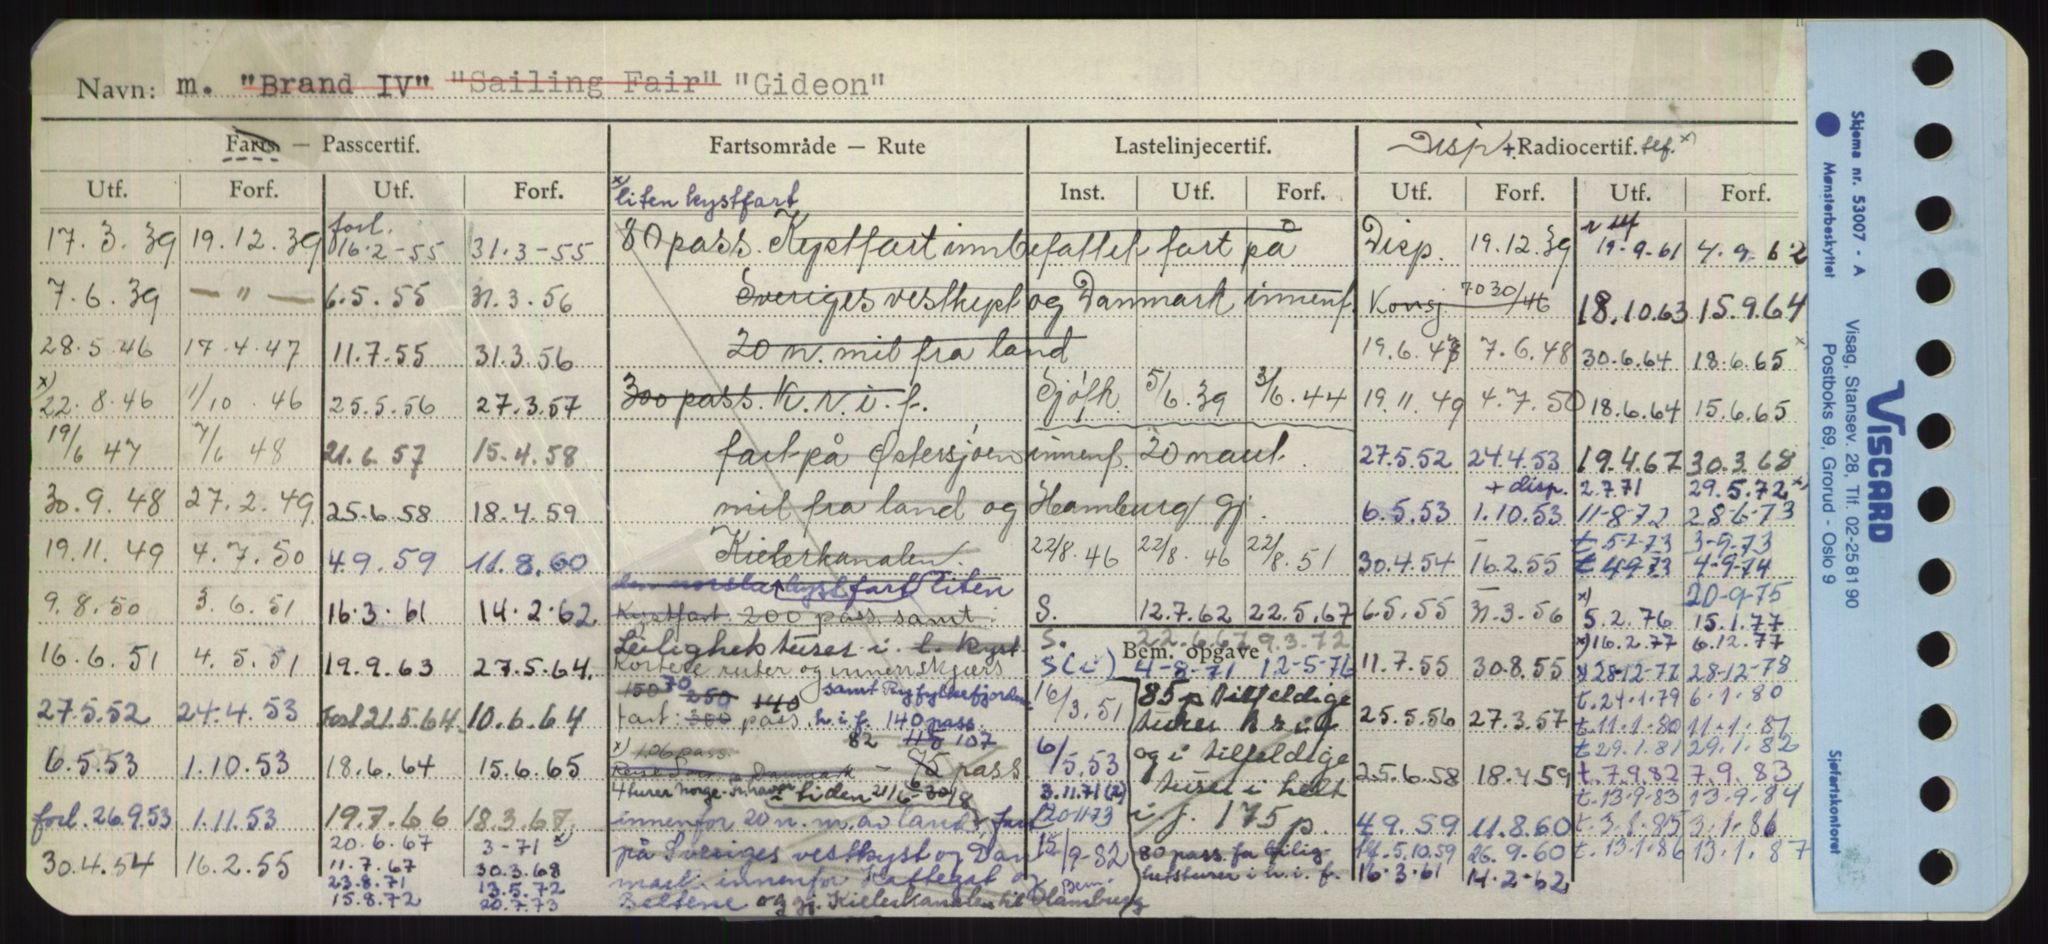 Navn: m. "Brand IV" "Sailing Fair" "Gideon"
Farts - Passcertif. Fartsområde — Rute Lastelinjecertif. Disp + Radiocertif. tlf. x)
Utf. Forf. Utf. Forf. x) liten kystfart Inst. Utf. Forf. Utf. Forf. Utf. Forf.
17.3.39 19.12.39 forl. 16.2-55 31.3-55 80 pass. Kystfart innbefattet fart på Disp. 19.12.39 19.9.61 4.9.62
7.6.39 — " — 6.5.55 31.3.56 Sveriges vestkyst og Danmark innenf. Konsj 7030/46 18.10.63 15.9.64
28.5.46 17.4.47 11.7.55 31.3.56 20 n. mil fra land 19.6.47 7.6.48 30.6.64 18.6.65
x) 22.8.46 1/10.46 25.5.56 27.3.57 300 pass. K.r.i.f. Sjøfk. 5/6.39 3/6.44 19.11.49 4.7.50 18.6.64 15.6.65
19/6 47 7/6 48 21.6.57 15.4.58 fart på Østersjøen innenf. 20 naut. 27.5.52 24.4.53 19.4.67 30.3.68
+ disp. 2.7.71 29.5.72 x)
30.9.48 27.2.49 25.6.58 18.4.59 mil fra land og Hamburg gj. 6.5.53 1.10.53 11-8-72 28-6-73
19.11.49 4.7.50 4.9.59 11.8.60 Kielerkanalen. 22/8.46 22/8.46 22/8.51 30.4.54 16.2.55 t 4-9-73 4-9-74
kystfart liten
20-9-75
9.8.50 3.6.51 16.3.61 14.2.62 Kystfart 200 pass. samt S. 12.7.62 22.5.67 6.5.55 31.3.56 x) 5.2.76 15.1.77
Leilighetsturer i l. kyst S. 22.6.67 9.3.72 x) 16.2.77 6.12.77
Bem. opgave
16.6.51 4.5.51 19.9.63 27.5.64. Kortere ruter og innenskjærs S(i) 4-8-71 12-5-76 11.7.55 30.8.55 28-12-77 28-12-78
150 70 250 140 samt Ryfylkefjorden 16/3.51 85 p tilfeldige t.24.1.79 6.1.80
27.5.52 24.4.53 Forl 21.5.64 10.6.64 fart: 300 pass. h.i.f. 140 pass. turer k r i f 25.5.56 27.3.57 t.11.1.80 11.1.81
x) 106 pass. 82 118 107 6/5.53 og i tilfeldige t.29.1.81 29.1.82
6.5.53 1.10.53 18.6.64 15.6.65 — 75 pass turer i helt 25.6.58 18.4.59 t.7.9.82 7.9.83
4 turer Norge- i tiden 21/6-30/8 3.11.71(2) t.13.9.83 13.9.84
forl. 26.9.53 1.11.53 19.7.66 18.3.67. innenfor 20 n.m. av land, fart 20-11-73 i f. 175 p. 4.9.59 11.8.60 t.3.1.85 3.1.86
20.6.67 3-71 x)
30.4.54 16.2.55 11.7.67 30.3.68 på Sveriges vestkyst og Dan 15/9-82 80 pass. for leilig- 14.5.10.59 26.9.60 t.13.1.86 13.1.87
23.8.71 13.5.72 mark innenfor Kattegat o Bem. hetsturer i h.i.f. 16.3.61 14.2.62
15.8.72 20.7.73 Beltene og gj. Kielerkanalen til Hamburg
Skjema nr. 53007 - A Mønsterbeskyttet
Visag, Stansev. 28, Tlf. 02-25 81 90
Postboks 69, Grorud - Oslo 9
VISCARD
Sjøfartskontoret